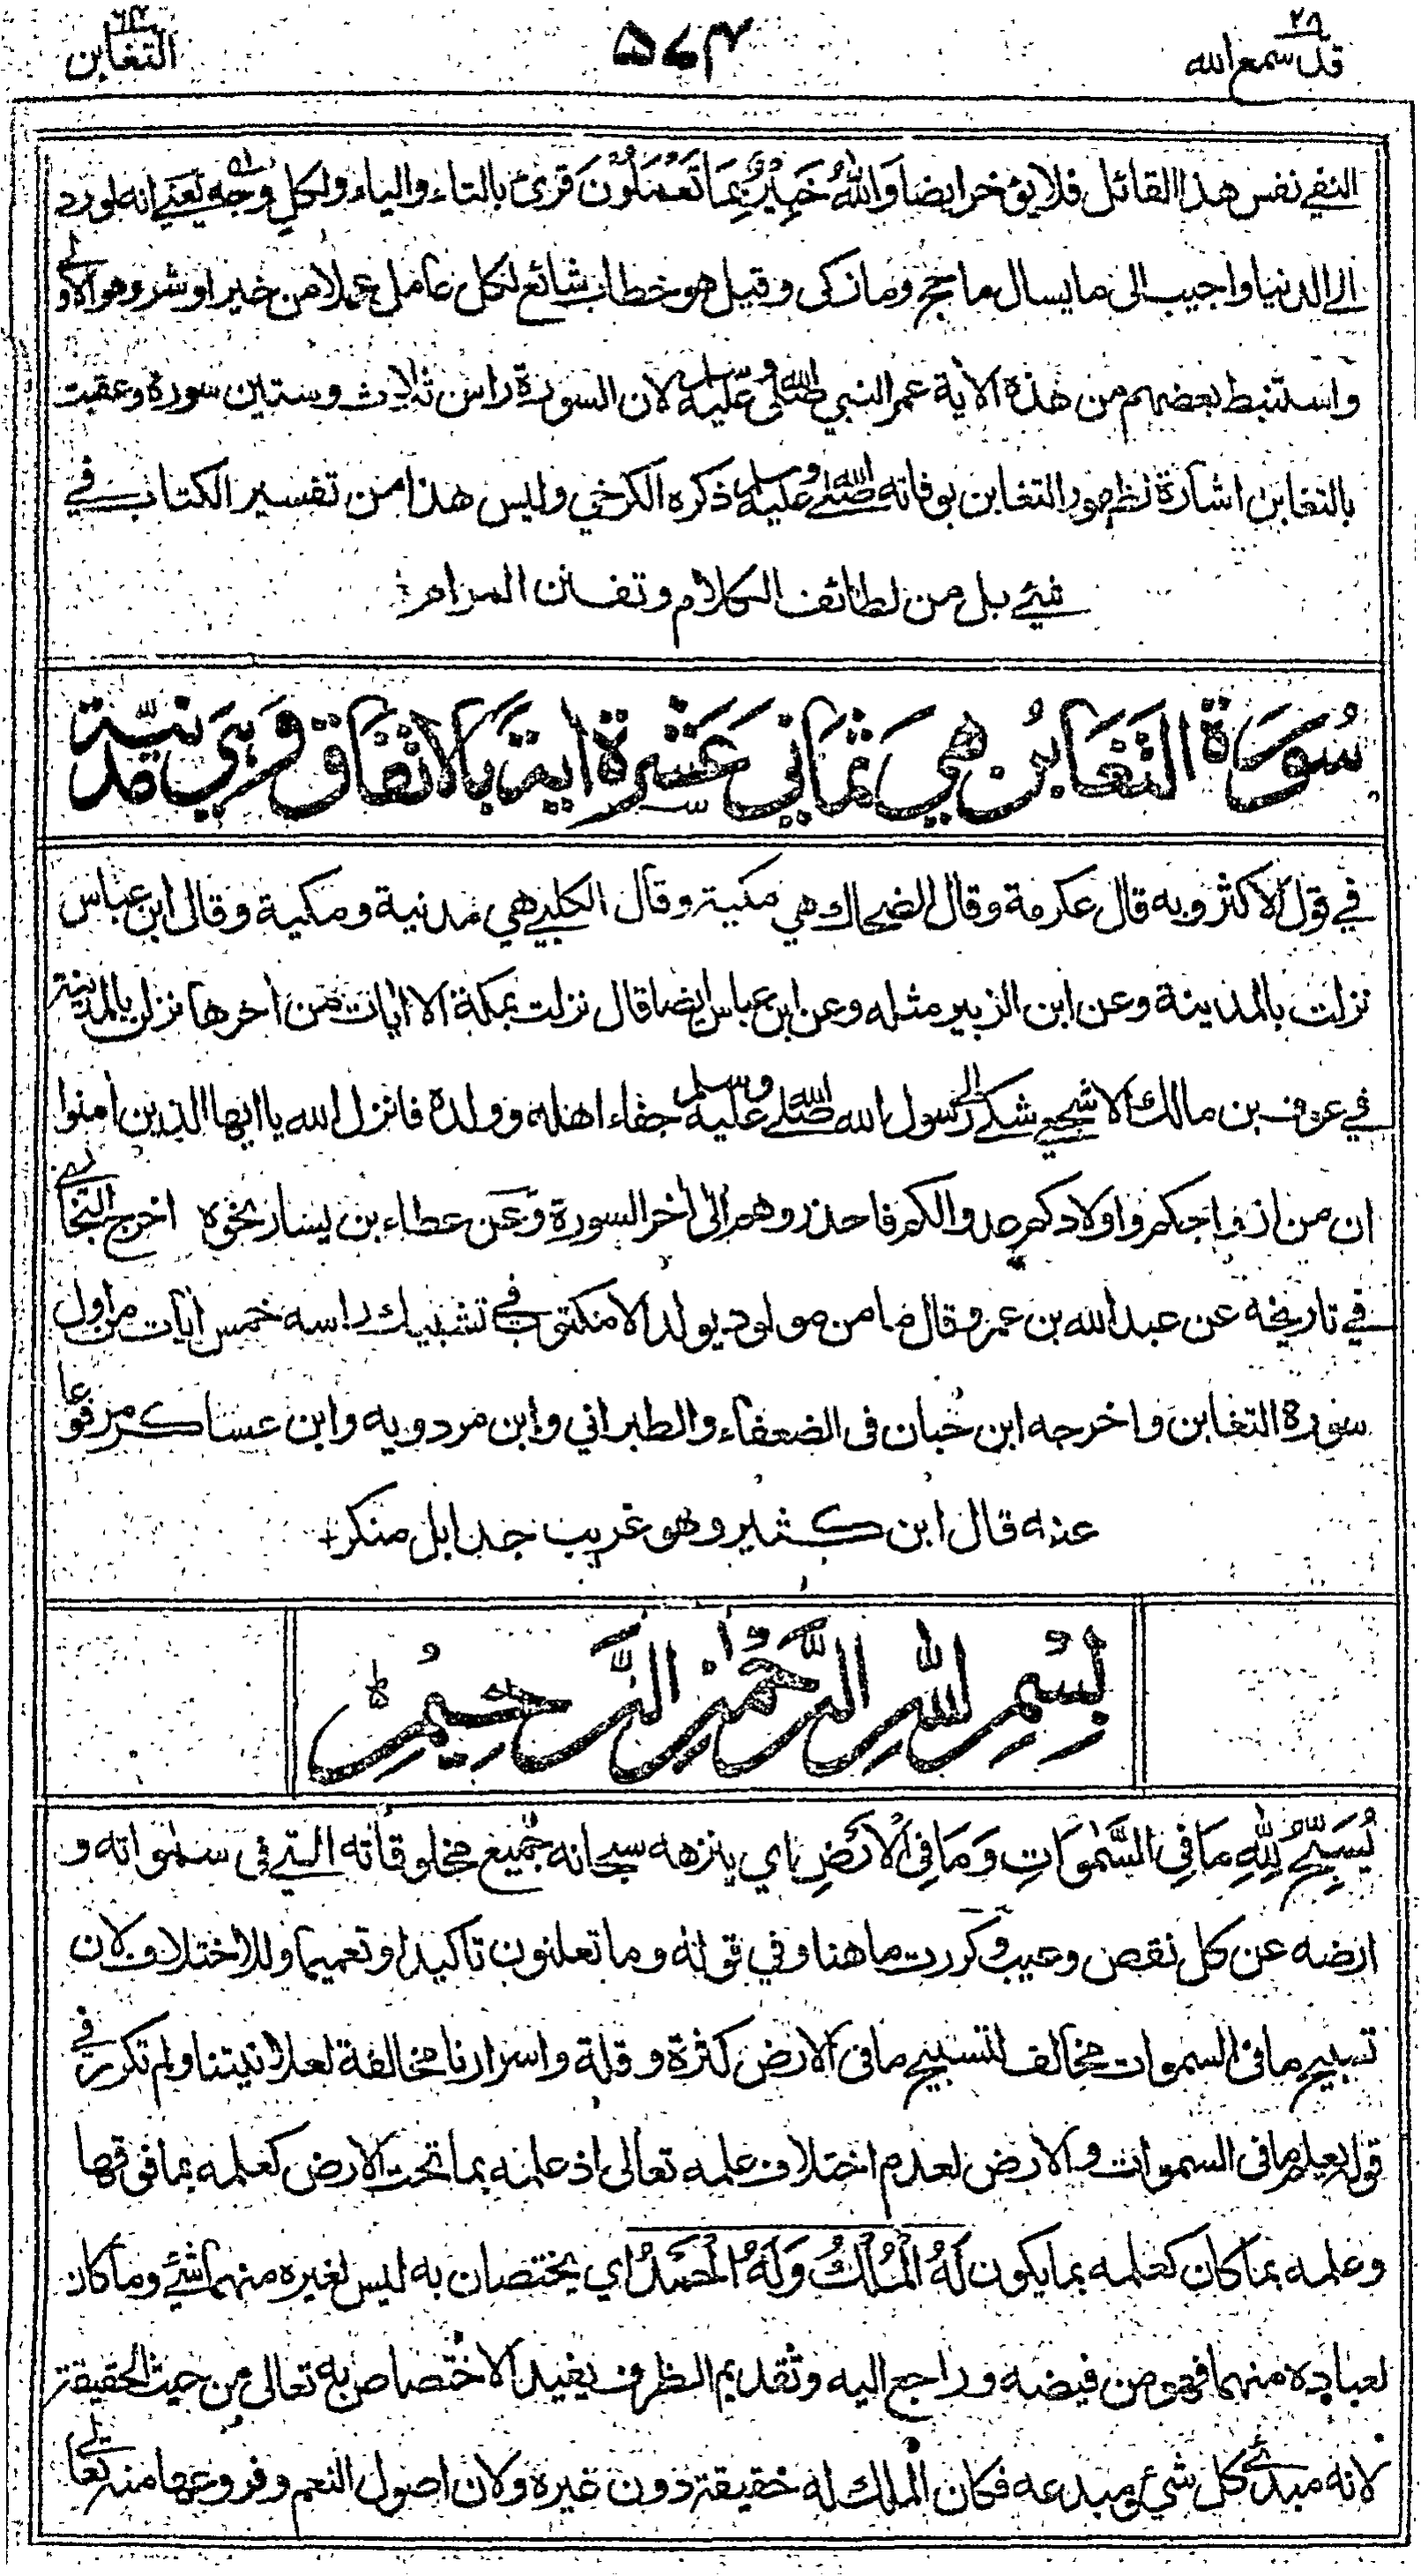 قد سمع الله ٢٨
٥٧٤
التغابن ٦٤
النفي نفس هذا القائل فلا يؤخر ايضا وَاللهُ خَبِيْرٌ بِمَا تَعْمَلُوْنَ قرئ بالتاء والياء ولكل وجه يعني انه لو رد
الى الدنيا واجيب الى ما يسال ما حج وما زكى وقيل هو خطاب شائع لكل عامل عملا من خير او شر وهو الاولى
واستنبط بعضهم من هذه الاية عمر النبي صلى الله عليه وسلم لان السورة راس ثلاث وستين سورة وعقبت
بالتغابن اشارة لظهور التغابن بوفاته صلى الله عليه وسلم ذكره الكرخي وليس هذا من تفسير الكتاب في
شيئ بل من لطائف الكلام وتفانن المرام
سُوْرَةُ التَّغَابُنِ هِيَ ثَمَانِيَ عَشْرَةَ ايَةً بِالْاِتِّفَاقِ وَهِيَ مَدَنِيَّة
في قول الاكثر وبه قال عكرمة وقال الضحاك هي مكية وقال الكلبي هي مدنية ومكية وقال ابن عباس
نزلت بالمدينة وعن ابن الزبير مثله وعن ابن عباس ايضا قال نزلت بمكة الا ايات من اخرها نزلن بالمدينة
في عوف بن مالك الاشجعي شكى الى رسول الله صلى الله عليه وسلم جفاء اهله وولده فانزل الله يا ايها الذين امنوا
ان من ازواجكم واولادكم عدوا لكم فاحذروهم الى اخر السورة وعن عطاء بن يسار نحوه اخرج البخاري
في تاريخه عن عبد الله بن عمرو قال ما من مولود يولد الا مكتوب في تشبيك راسه خمس ايات من اول
سورة التغابن واخرجه ابن حبان في الضعفاء والطبراني وابن مردويه وابن عساكر مرفوعا
عنه قال ابن كثير وهو غريب جدا بل منكر
بِسْمِ اللهِ الرَّحْمٰنِ الرَّحِيْمِ
يُسَبِّحُ لِلّٰهِ مَا فِي السَّمٰوَاتِ وَمَا فِي الْاَرْضِ اي ينزهه سبحانه جميع مخلوقاته التي في سمواته و
ارضه عن كل نقص وعيب وكررت ما هنا وفي قوله وما تعلنون تاكيدا وتعميما وللاختلاف لان
تسبيح ما في السموات مخالف لتسبيح ما في الارض كثرة وقلة واسرارنا مخالفة لعلانيتنا ولم تكرر في
قوله يعلم ما في السموات والارض لعدم اختلاف علمه تعالى اذ علمه بما تحت الارض كعلمه بما فوقها
وعلمه بما كان كعلمه بما يكون لَهُ الْمُلْكُ وَلَهُ الْحَمْدُ اي يختصان به ليس لغيره منهما شئ وما كان
لعباده منهما فهو من فيضه وراجع اليه وتقديم الظرف يفيد الاختصاص به تعالى من حيث الحقيقة
لانه مبدئ كل شئ ومبدعه فكان الملك له حقيقة دون غيره ولان اصول النعم وفروعها منه تعالى